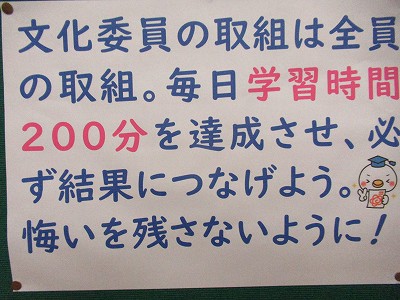 文化委員の取組は全員
の取組。毎日学習時間
200分を達成させ、必
ず結果につなげよう。
悔いを残さないように!